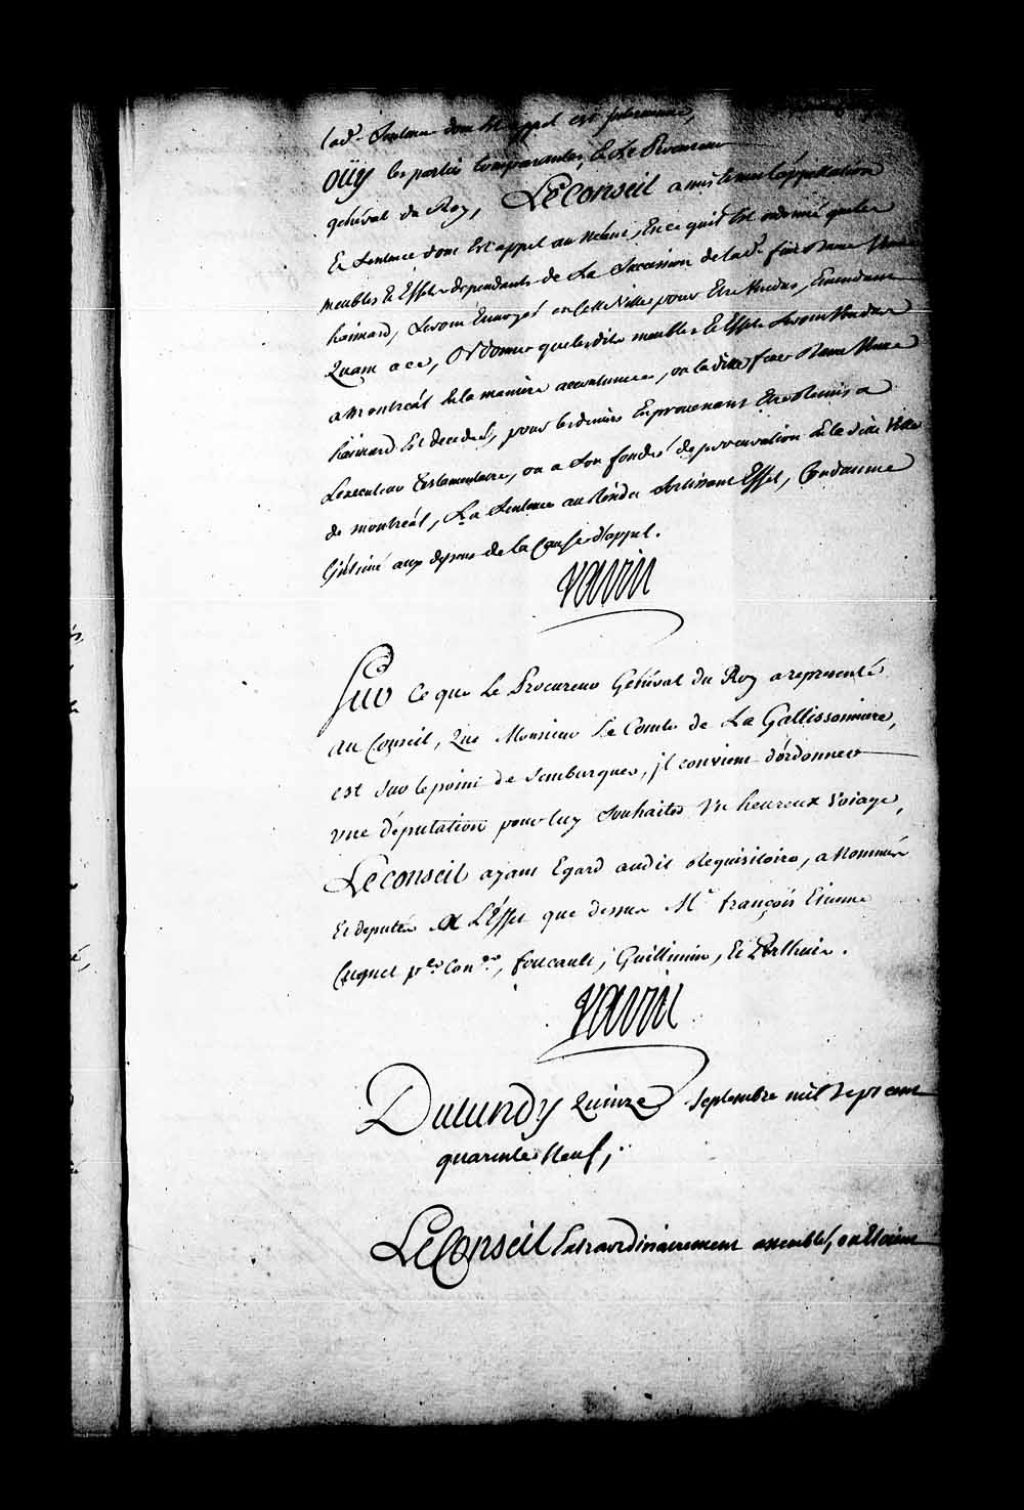 lad. Sentence dont est appel est intervenue,
Oüy les parties comparantes, & Le Procureur
général du Roy, Le Conseil a mis & met l'appellation
Et Sentence dont Est appel au Néant, En ce qu'il Est ordonné que les
meubles & Effets dependants de La Succession de lad. feüe Dame Marie
Raimard, Seront Envoyés en cette Ville pour Etre Vendus, Emendant
Quant a ce, Ordonne que lesdits meubles & Effets Seront Vendus
a montreal de la maniere accoutumée, ou ladite feüe Dame Marie
Raimard Est decedeé, pour les deniers En provenants Etre Remis a
L'executeur Testamentaire, ou a Son fondé de procuration de la dite Ville
de montreal, La Sentence au Résidu Sortissant Effet, Condamne
L'intimé aux depens de la Cause d'appel.
Varin
Sur Ce que Le Procureur Général du Roy a representé
au Conseil, Que Monsieur Le Comte de La Gallissonniere,
est sur le point de s'embarquer, jl convient d'ordonner
vne députation pour luy Souhaiter Vn heureux Voiage,
Le Conseil ayant Egard audit Requisitoire, a Nommé
Et deputé A L'Effet que dessus Mr. françois Etienne
Cugnet per. Coner., foucault, Guillimin, Et Perthuis.
Varin
Du Lundy Quinze Septembre mil Sept cent
quarente Neuf;
Le Conseil Extraordinairement assemblé, ou Etoient